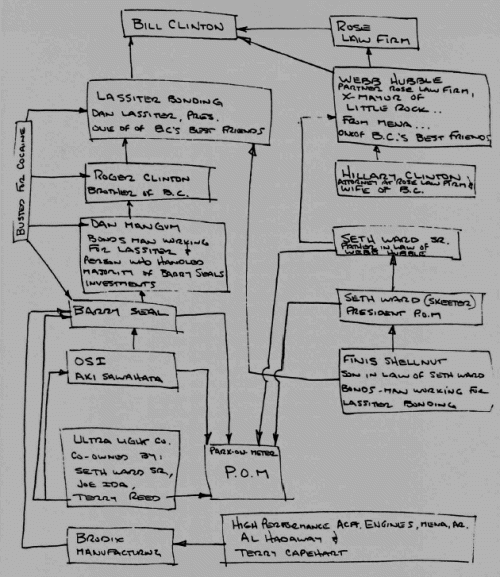 BILL CLINTON
ROSE
LAW FIRM
LASSITER BONDING
DAN LASSITER, PRES.
ONE OF OF B.C'S BEST FRIENDS
WEBB HUBBLE
PARTNER ROSE LAW FIRM,
X-MAYOR OF
LITTLE ROCK..
FROM MENA...
ONE OF B.C.'S BEST FRIENDS
BUSTED FOR COCAINE
ROGER CLINTON
BROTHER OF B.C.
HILLARY CLINTON
ATTORNEY AT ROSE LAW FIRM &
WIFE OF B.C.
DAN MANGUM
BONDS MAN WORKING
FOR LASSITER &
PERSON WHO HANDLED
MAJORITY OF BARRY SEALS
INVESTMENTS
SETH WARD SR.
FATHER IN LAW OF
WEBB HUBBLE
BARRY SEAL
SETH WARD (SKEETER)
PRESIDENT P.O.M
OSI
AKI SAWAHATA
FINIS SHELLNUT
SON IN LAW OF SETH WARD
BONDS-MAN WORKING FOR
LASSITER BONDING
ULTRA LIGHT CO.
CO-OWNED BY:
SETH WARD SR,
JOE IDA,
TERRY REED
PARK-ON-METER
P.O.M
BRODIX
MANUFACTURING
HIGH PERFORMANCE ACFT. ENGINES, MENA, AR.
AL HADAWAY &
TERRY CAPEHART